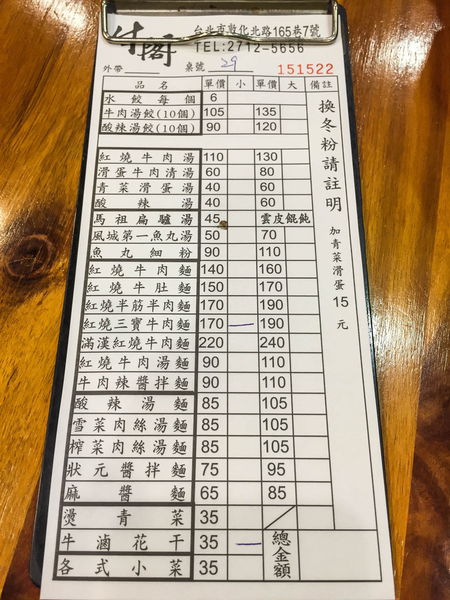 牛閣
台北市敦化北路165巷7號
TEL:2712-5656
外帶 桌號 29 151522
品名 單價 小 單價 大 備註
水餃每個 6
牛肉湯餃(10個) 105 135
酸辣湯餃(10個) 90 120
紅燒牛肉湯 110 130
滑蛋牛肉清湯 60 80
青菜滑蛋湯 40 60
酸辣湯 40 60
馬祖扁驢湯 45 雲皮餛飩
風城第一魚丸湯 50 70
魚丸細粉 90 110
紅燒牛肉麵 140 160
紅燒牛肚麵 150 170
紅燒半筋半肉麵 170 190
紅燒三寶牛肉麵 170 一 190
滿漢紅燒牛肉麵 220 240
紅燒牛肉湯麵 90 110
牛肉辣醬拌麵 90 110
酸辣湯麵 85 105
雪菜肉絲湯麵 85 105
榨菜肉絲湯麵 85 105
狀元醬拌麵 75 95
麻醬麵 65 85
燙青菜 35
牛滷花干 35 一
各式小菜 35
總金額
換冬粉請註明
加青菜滑蛋15元